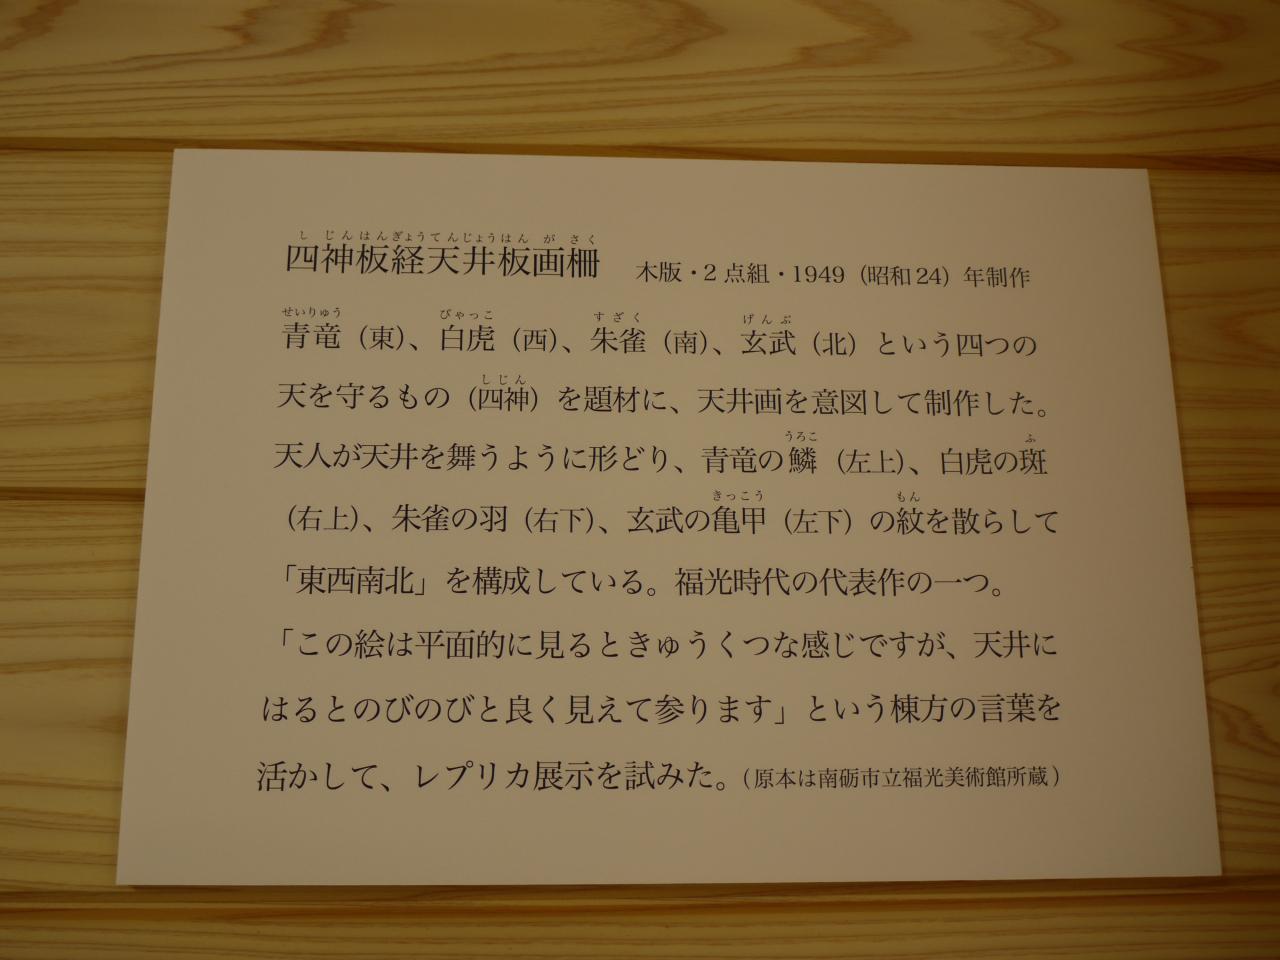 四神板経天井板画柵 木版・2点組・1949（昭和24）年制作
青竜（東）、白虎（西）、朱雀（南）、玄武（北）という四つの
天を守るもの（四神）を題材に、天井画を意図して制作した。
天人が天井を舞うように形どり、青竜の鱗（左上）、白虎の斑
（右上）、朱雀の羽（右下）、玄武の亀甲（左下）の紋を散らして
「東西南北」を構成している。福光時代の代表作の一つ。
「この絵は平面的に見るときゅうくつな感じですが、天井に
はるとのびのびと良く見えて参ります」という棟方の言葉を
活かして、レプリカ展示を試みた。（原本は南砺市立福光美術館所蔵）